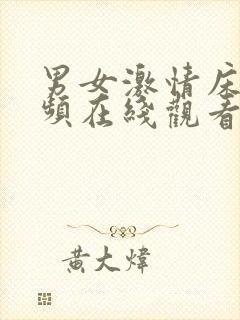 男女激情床
頻在綫觀看
黃大煒